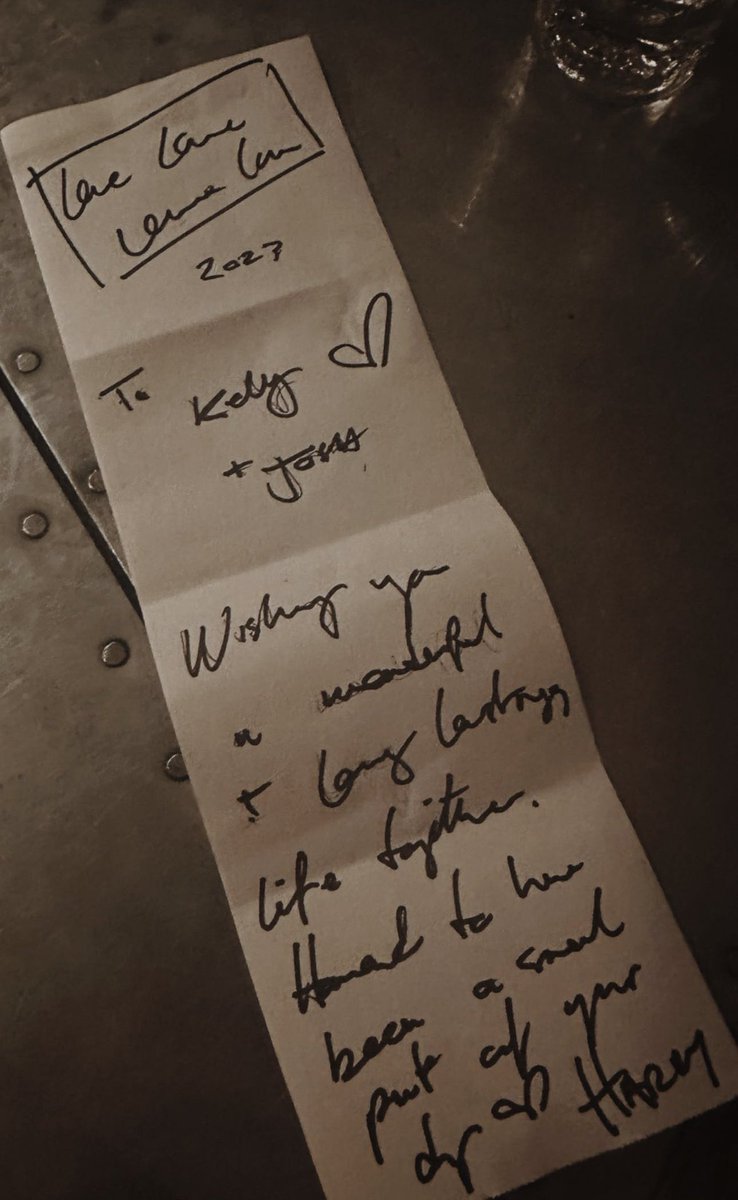 Love Love
Love Love
2023
To Kelly
+ Josh
Wishing you
a wonderful
+ long lasting
life together.
Honored to have
been a small
part of your
day HARRY